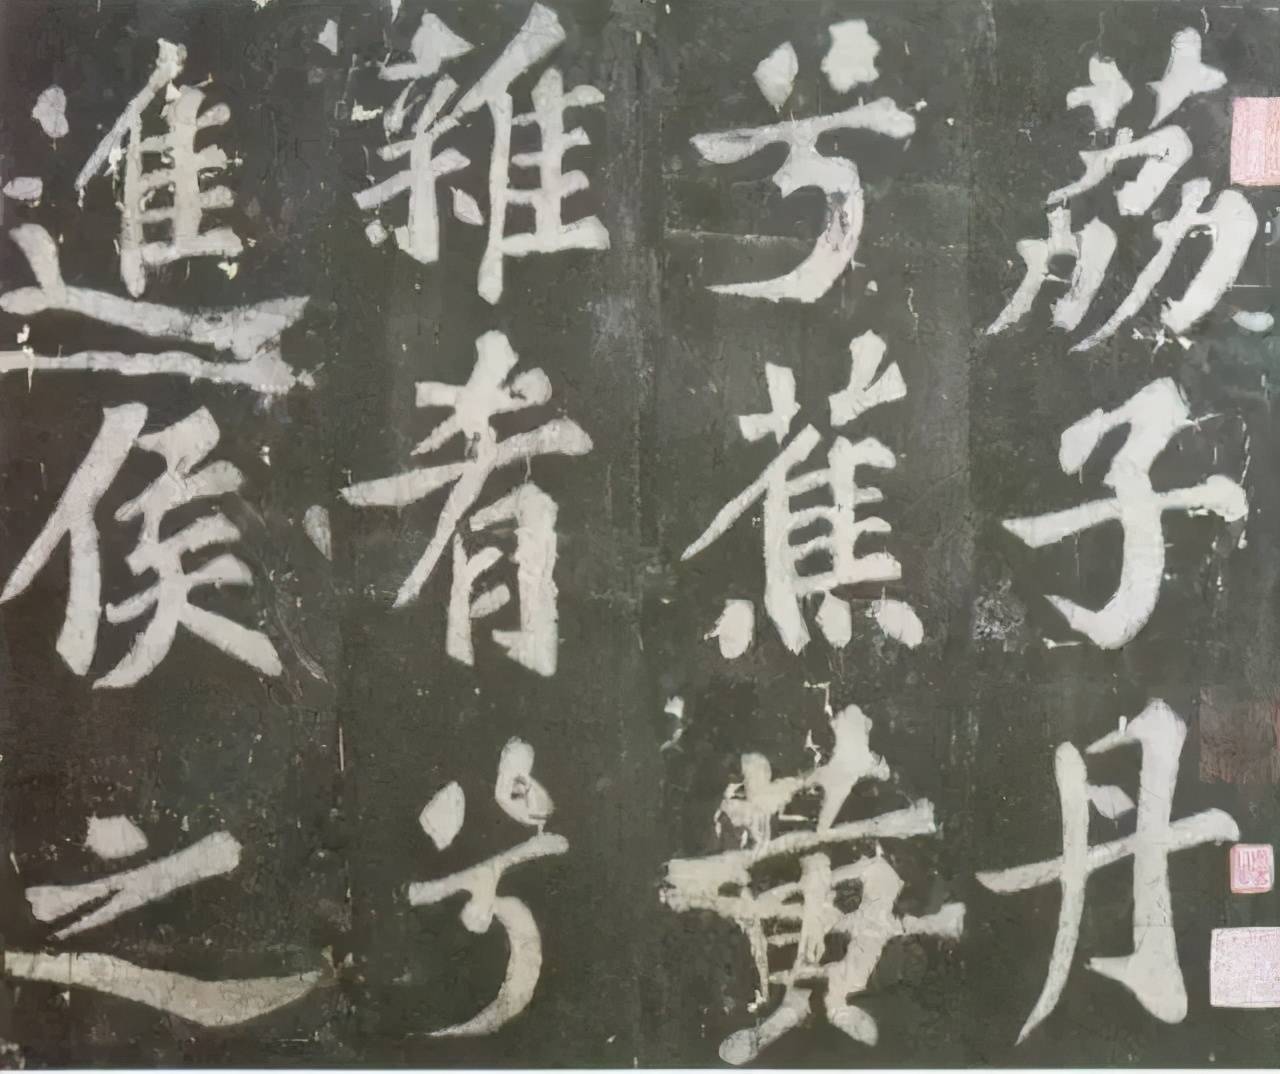 荔子丹
兮蕉黃
雜肴兮
進侯之